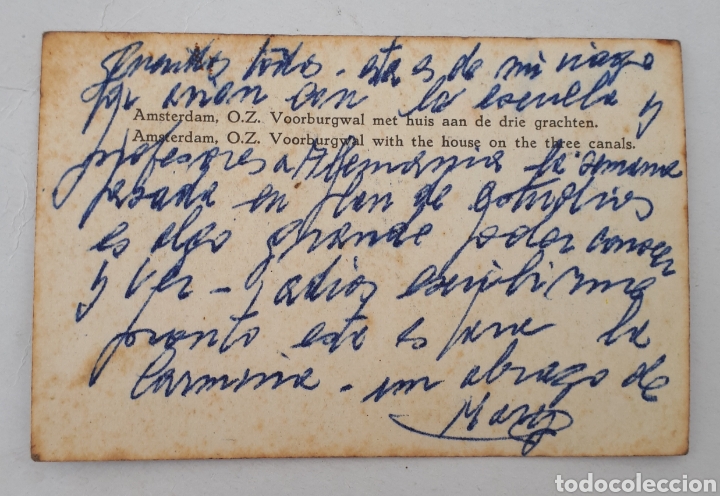 Queridos todos - esta es de mi viage
que con la escuela y
Amsterdam, O.Z. Voorburgwal met huis aan de drie grachten.
Amsterdam, O.Z. Voorburgwal with the house on the three canals.
profesores a Allemania la semana
pasada en plan de estudios
es algo grande poder conocer
y ver - adios escribirme
pronto esta es para la
Carmina - un abrazo de
Mary
todocoleccion